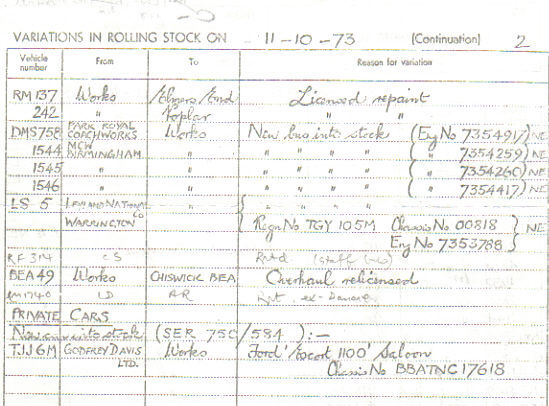 VARIATIONS IN ROLLING STOCK ON 11-10-73 (Continuation) 2
Vehicle number From To Reason for variation
RM 137 Works Elmers End Licensed repaint
242 " Poplar " "
DMS 758 PARK ROYAL COACHWORKS Works New bus into stock (Eng No 7354917) NE
1544 MCW BIRMINGHAM " " " " " ( " 7354259) NE
1545 " " " " " " ( " 7354260) NE
1546 " " " " " " ( " 7354417) NE
LS 5 LEYLAND NATIONAL CO " " " " "
WARRINGTON Regn No TGY 105M Chassis No 00818 NE
Eng No 7353788
RF 314 CS Rntd (staff
BEA 49 Works CHISWICK BEA Overhaul relicensed
RM 1740 LD AR ex-
PRIVATE CARS
New car into stock (SER 75C/584):—
TJJ 6M GODFREY DAVIS LTD. Works Ford 'Escort 1100' Saloon
Chassis No BBATNC 17618